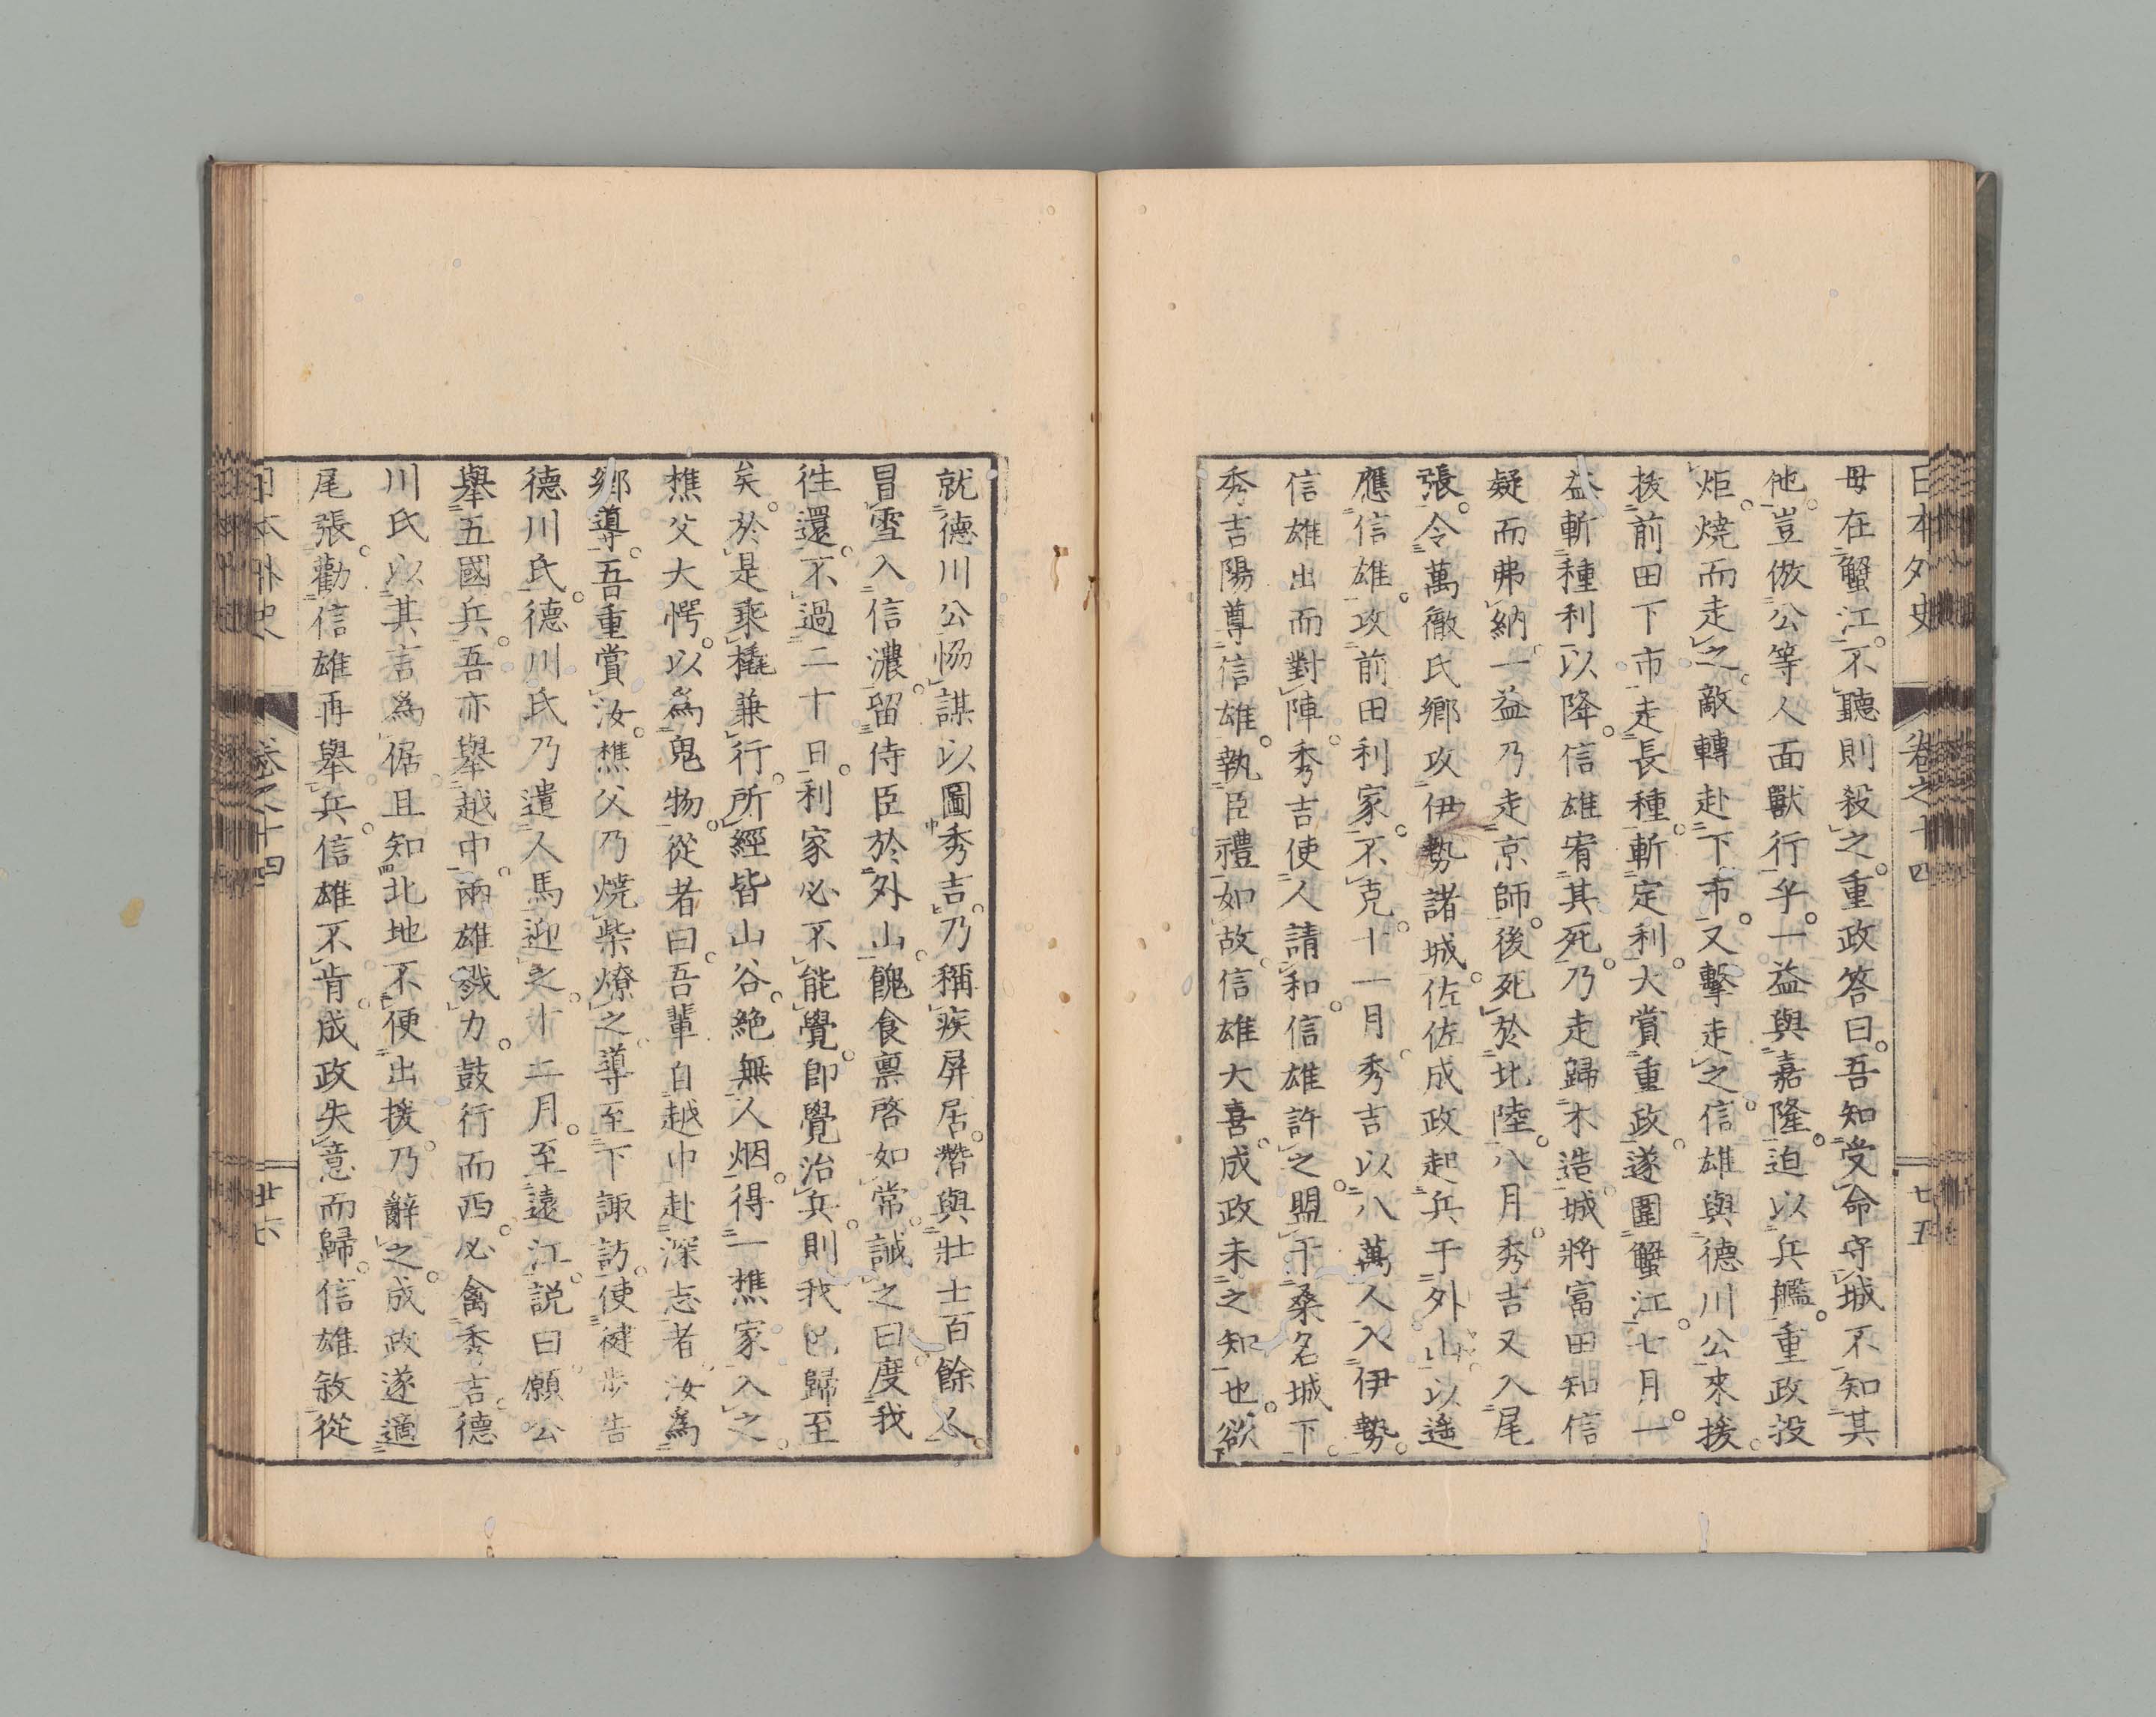 日本外史 卷之十四 廿五
母在蟹江。不聽則殺之。重政答曰。吾知受命守城。不知其
他。豈倣公等人面獸行乎。一益與嘉隆。迫以兵艦。重政投
炬。燒而走之。敵轉赴下市。又擊走之。信雄與德川公來援。
拔前田下市走長種。斬定利。大賞重政。遂圍蟹江。七月。一
益斬種利以降。信雄宥其死。乃走歸木造。城將富田知信
疑而弗納。一益乃走京師。後死於北陸。八月。秀吉又入尾
張。令萬徹氏鄉攻伊勢諸城。佐佐成政起兵于外山。以遙
應信雄。攻前田利家。不克。十一月。秀吉以八萬人入伊勢。
信雄出而對陣。秀吉使人請和。信雄許之。盟于桑名城下。
秀吉陽尊信雄。執臣禮如故。信雄大喜。成政未之知也。欲
就德川公協謀以圖秀吉。乃稱疾屏居。潛與壯士百餘人。
冒雪入信濃。留侍臣於外山。餽食禀啓如常。誡之曰。度我
往還。不過二十日。利家必不能覺。卽覺治兵。則我已歸至
矣。於是乘橇兼行。所經皆山谷。絕無人烟。得一樵家入之。
樵父大愕。以爲鬼物。從者曰。吾輩自越中赴深志者。汝爲
鄉導。吾重賞汝。樵父乃燒柴燎之。導至下諏訪。使健步告
德川氏。德川氏乃遣人馬迎之。十二月。至遠江。說曰。願公
舉五國兵。吾亦舉越中。兩雄戮力。鼓行而西。必禽秀吉。德
川氏以其言爲倨。且知北地不便出援。乃辭之。成政遂適
尾張。勸信雄再舉兵。信雄不肯。成政失意而歸。信雄敘從
日本外史 卷之十四 廿六